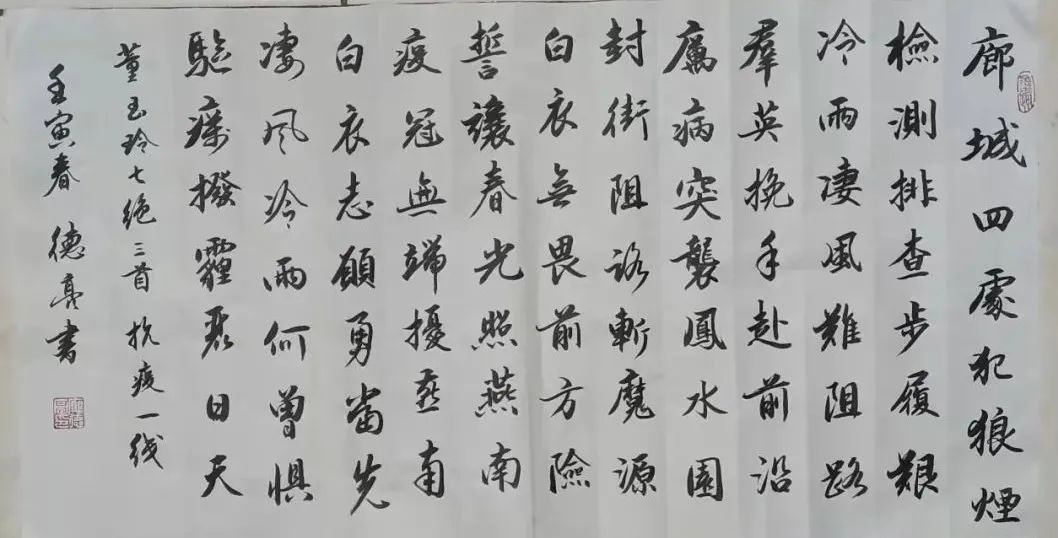 廊城四處犯狼煙
檢測排查步履艱
冷雨凄風難阻路
羣英挽手赴前沿
厲病突襲鳳水園
封街阻路斬魔源
白衣無畏前方險
誓讓春光照燕南
疫冠無端擾燕南
白衣志願勇當先
凄風冷雨何曾懼
駈撥霾日天
董玉玲七绝三首 抗疫一线
壬寅春 德亮書